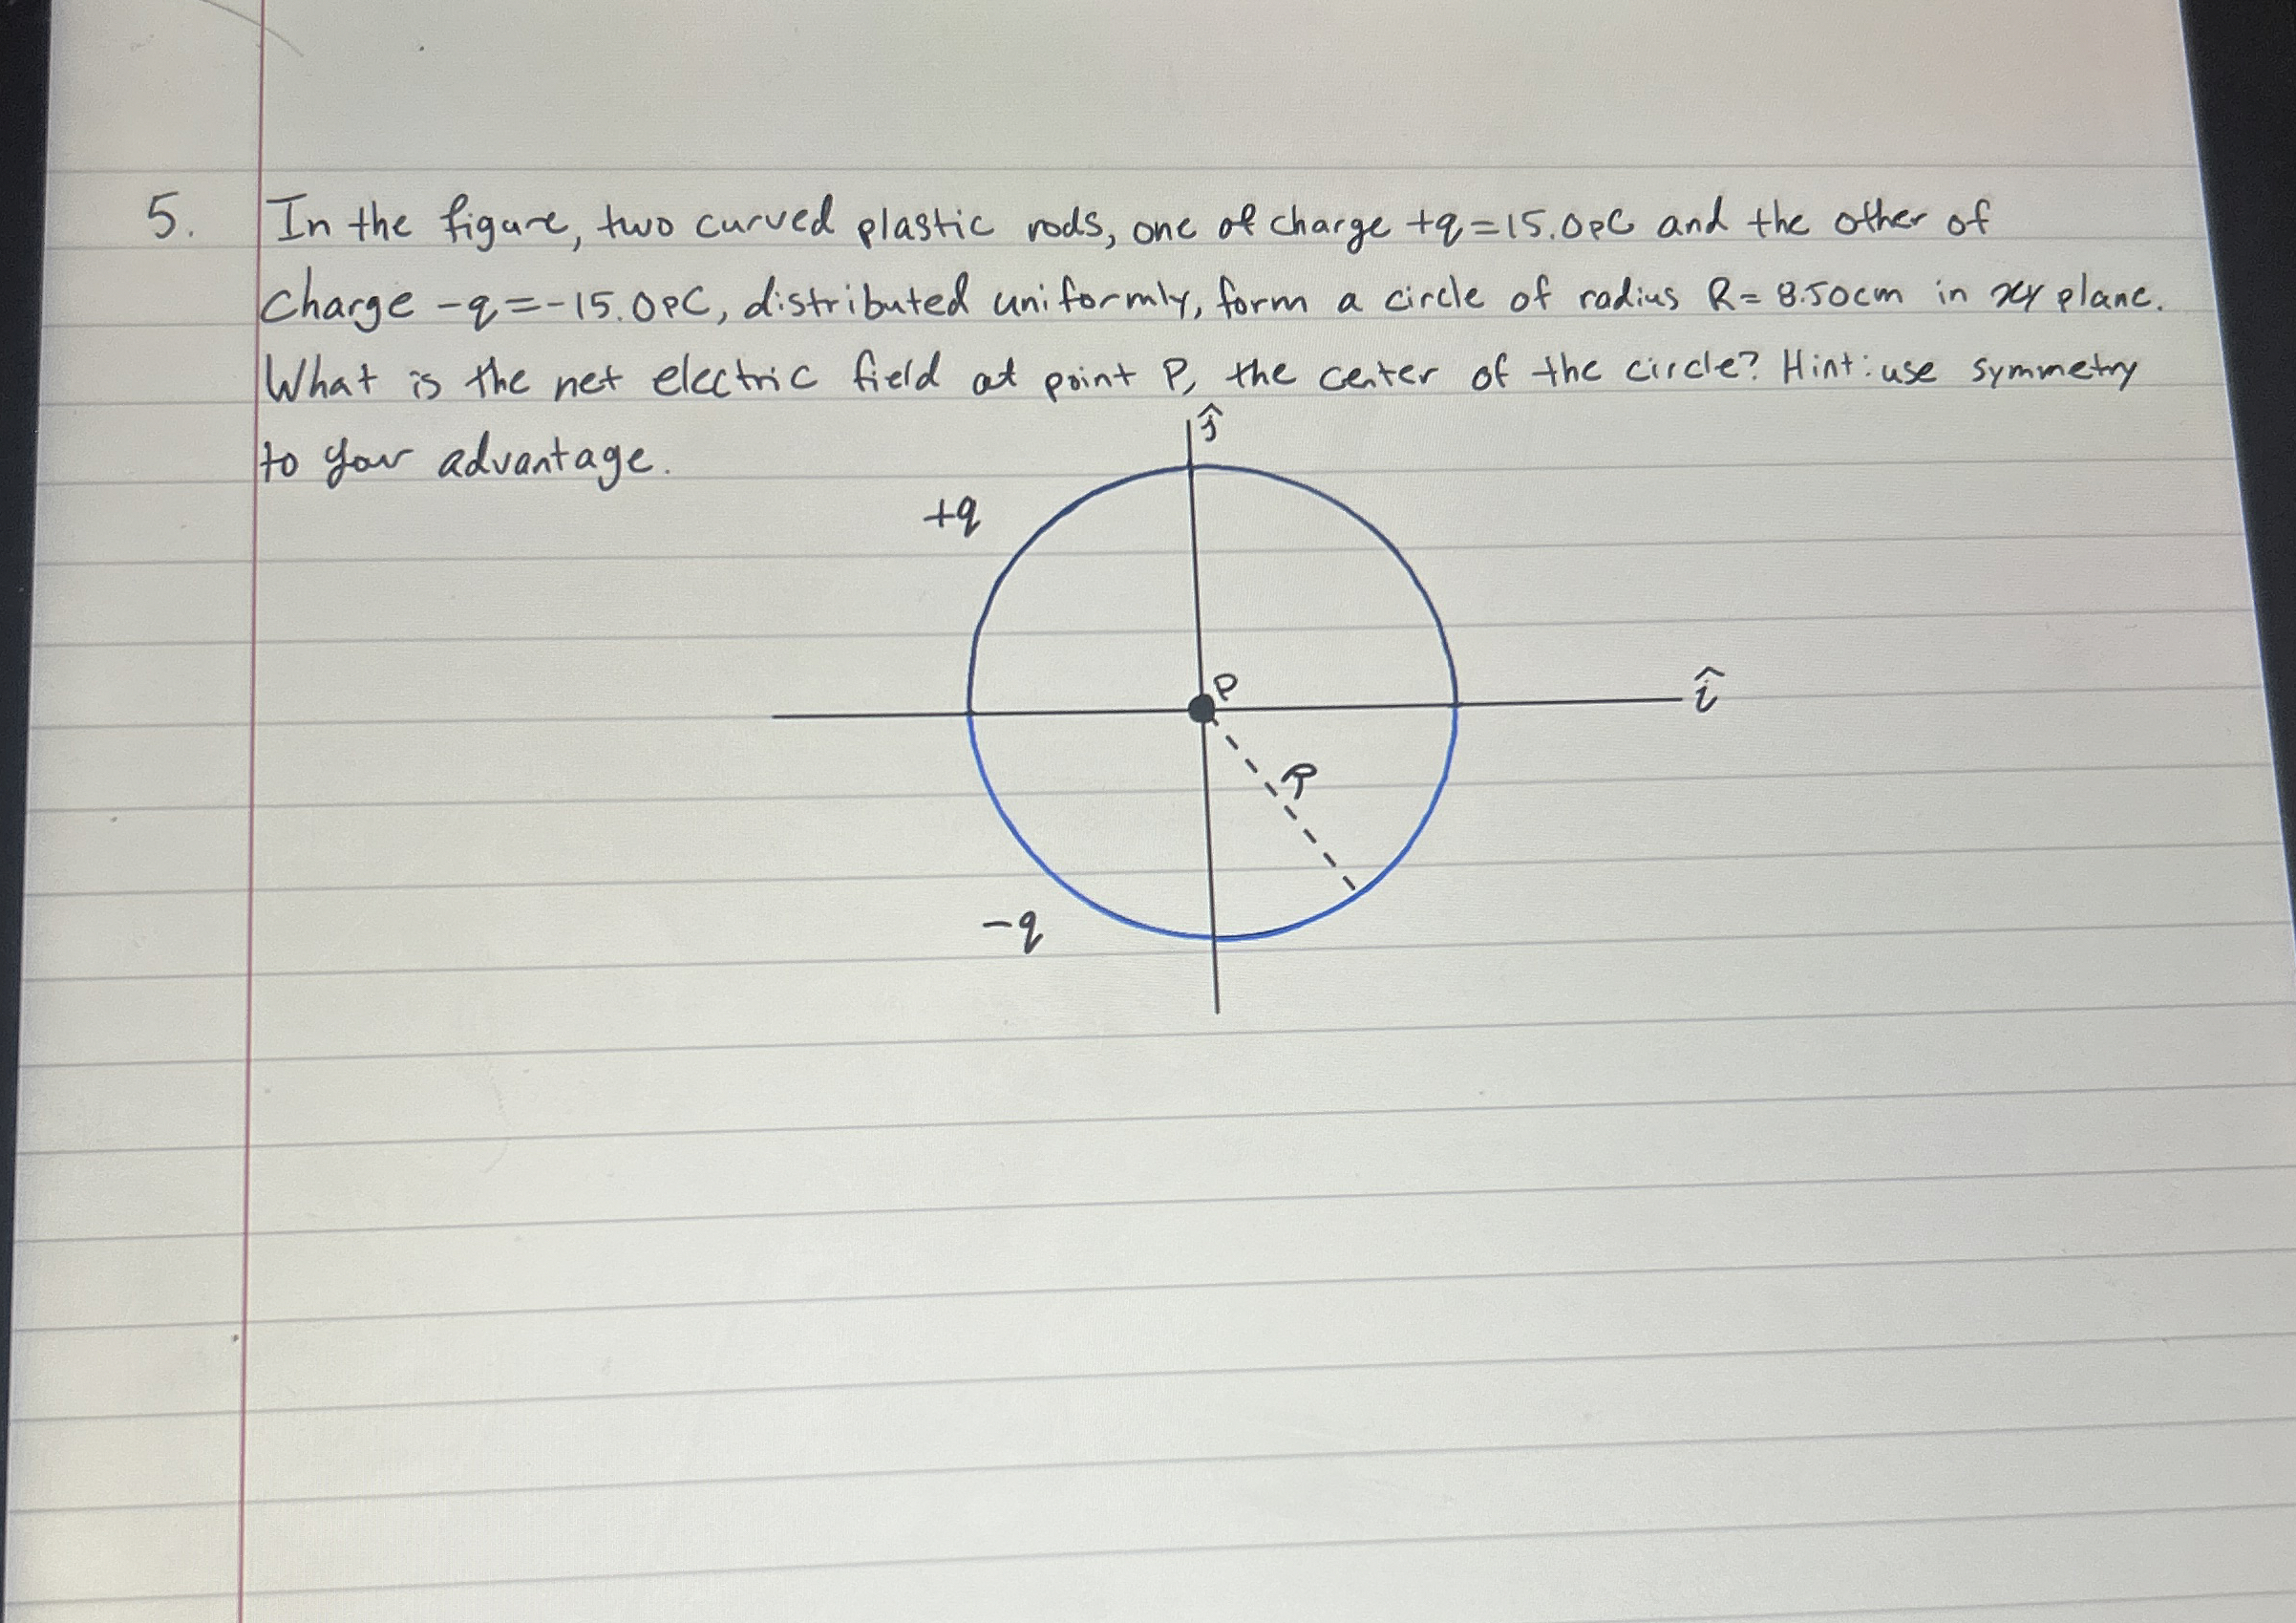 5. In the figure, two curved plastic rods, one of charge +q=15.0pC and the other of
charge -q=-15.0pC, distributed uniformly, form a circle of radius R=8.50cm in xy plane.
What is the net electric field at point P, the center of the circle? Hint: use symmetry
to your advantage.
ĵ
+q
P
î
R
-q